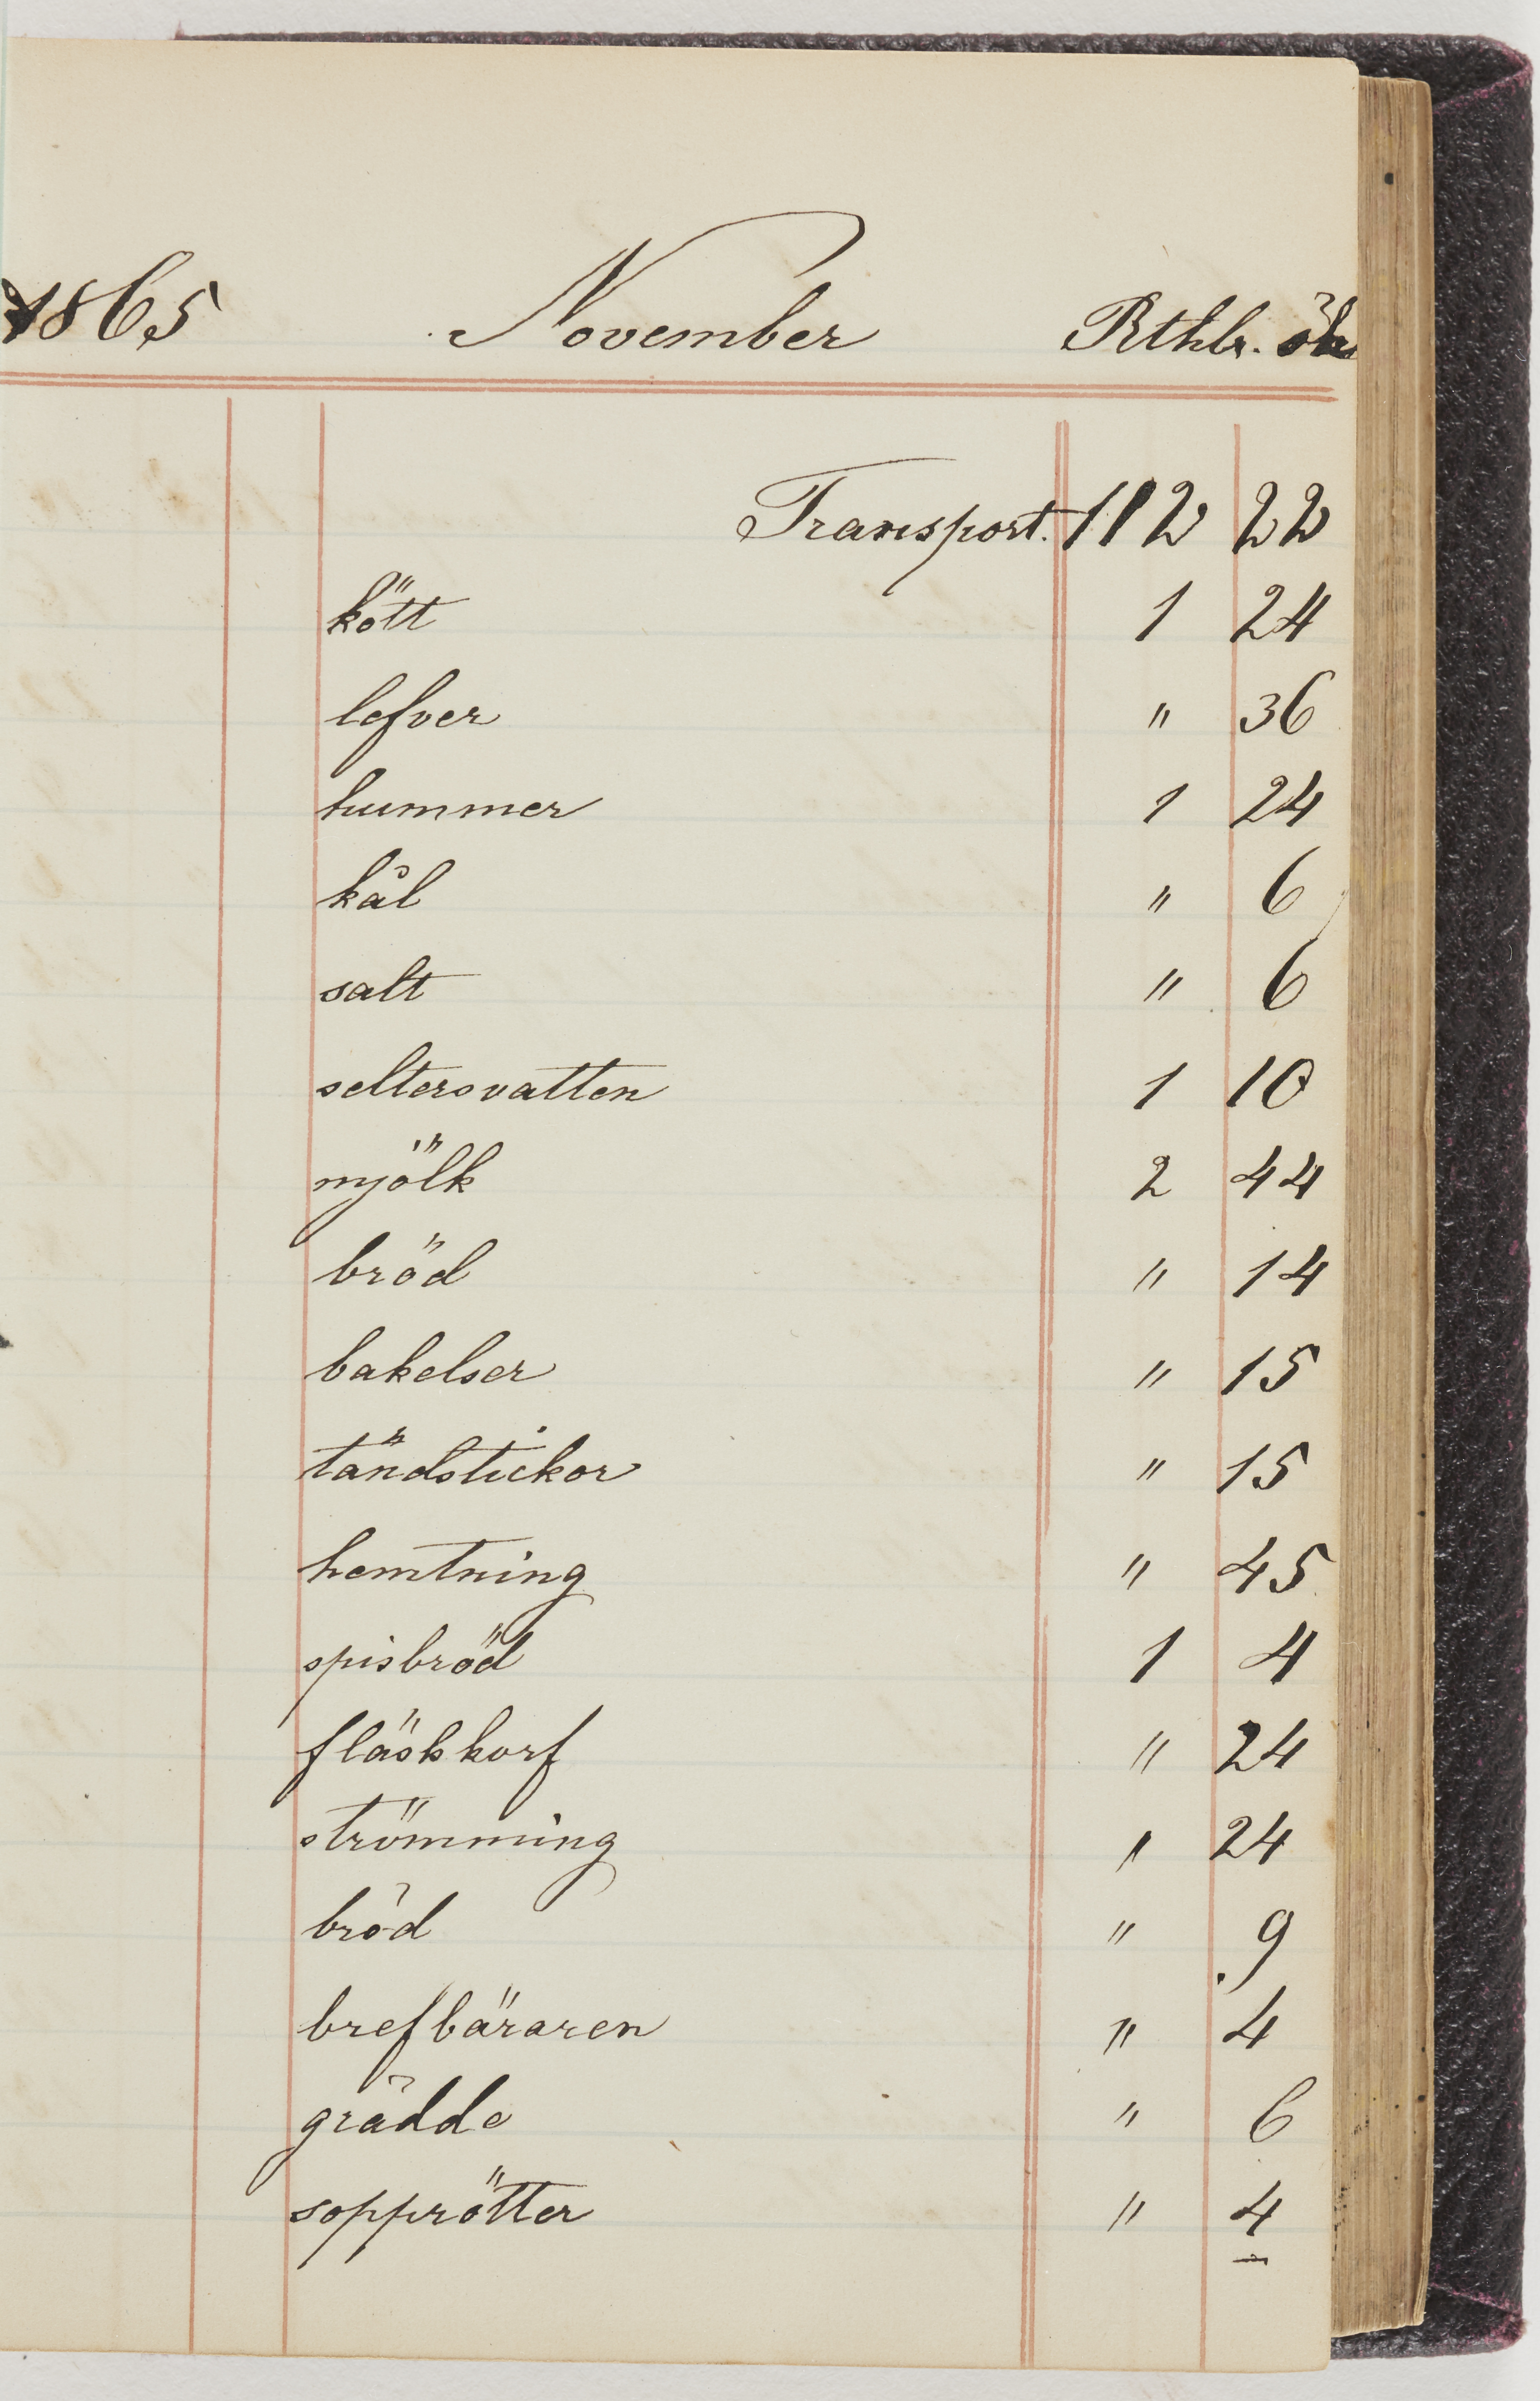 1865 November Rthlr. ör
Transport. 112 22
kött 1 24
lefver " 36
hummer 1 24
kål " 6
salt " 6
seltersvatten 1 10
mjölk 2 44
bröd " 14
bakelser " 15
tändstickor " 15
hemtning " 45
spisbröd 1 4
fläskkorf " 24
strömming " 24
bröd " 9
brefbäraren " 4
grädde " 6
sopprötter " 4